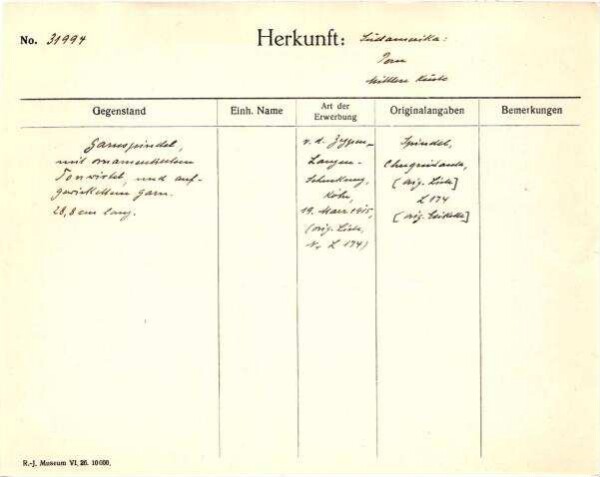 No. 31994
Herkunft: Südamerika:
Peru
Mittlere Küste
Gegenstand
Einh. Name
Art der
Erwerbung
Originalangaben
Bemerkungen
Garnspindel,
mit ornamentiertem
Tonwirtel, und auf-
gewickeltem Garn.
28,8 cm lang.
v. d. Zypen-
Langen-
Schenkung,
Köln,
19. März 1915,
(orig. Liste,
No L 174)
Spindel,
[orig. Liste]
L 174
[orig. Etikette]
R.-J. Museum VI. 26. 10000.